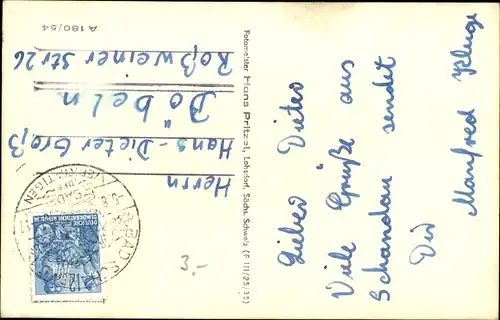 Lieber Dieter
Viele Grüße aus
Schandau sendet
Dir Manfred Kluge
Fotomeister Hans Pritzel, Lohsdorf, Sächs. Schweiz (F 111/25/35)
Herrn
Hans-Dieter Groß
Döbeln
Roßweiner Str 26
A 180/54
DEUTSCHE
DEMOKRATISCHE REPUBLIK
BAD
3.-